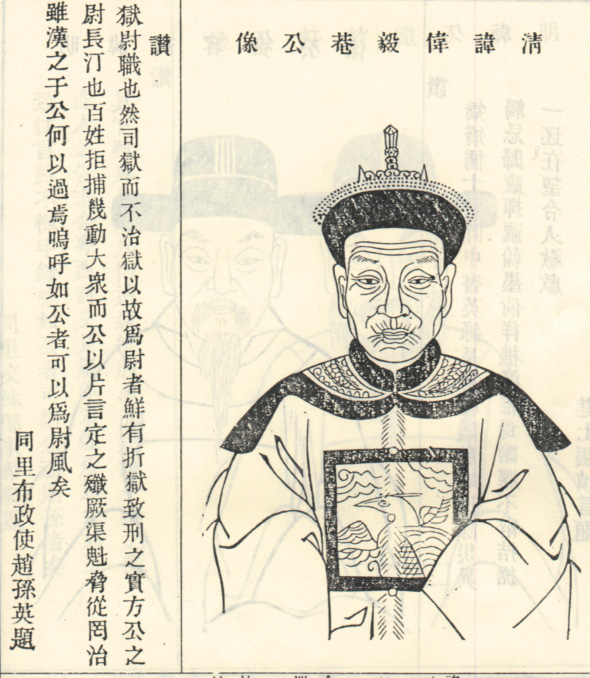 清諱偉毅巷公像
讚
獄尉職也然司獄而不治獄以故爲尉者鮮有折獄致刑之實方公之
尉長汀也百姓拒捕幾動大衆而公以片言定之殲厥渠魁脅從罔治
雖漢之于公何以過焉嗚呼如公者可以爲尉風矣
同里布政使趙孫英題